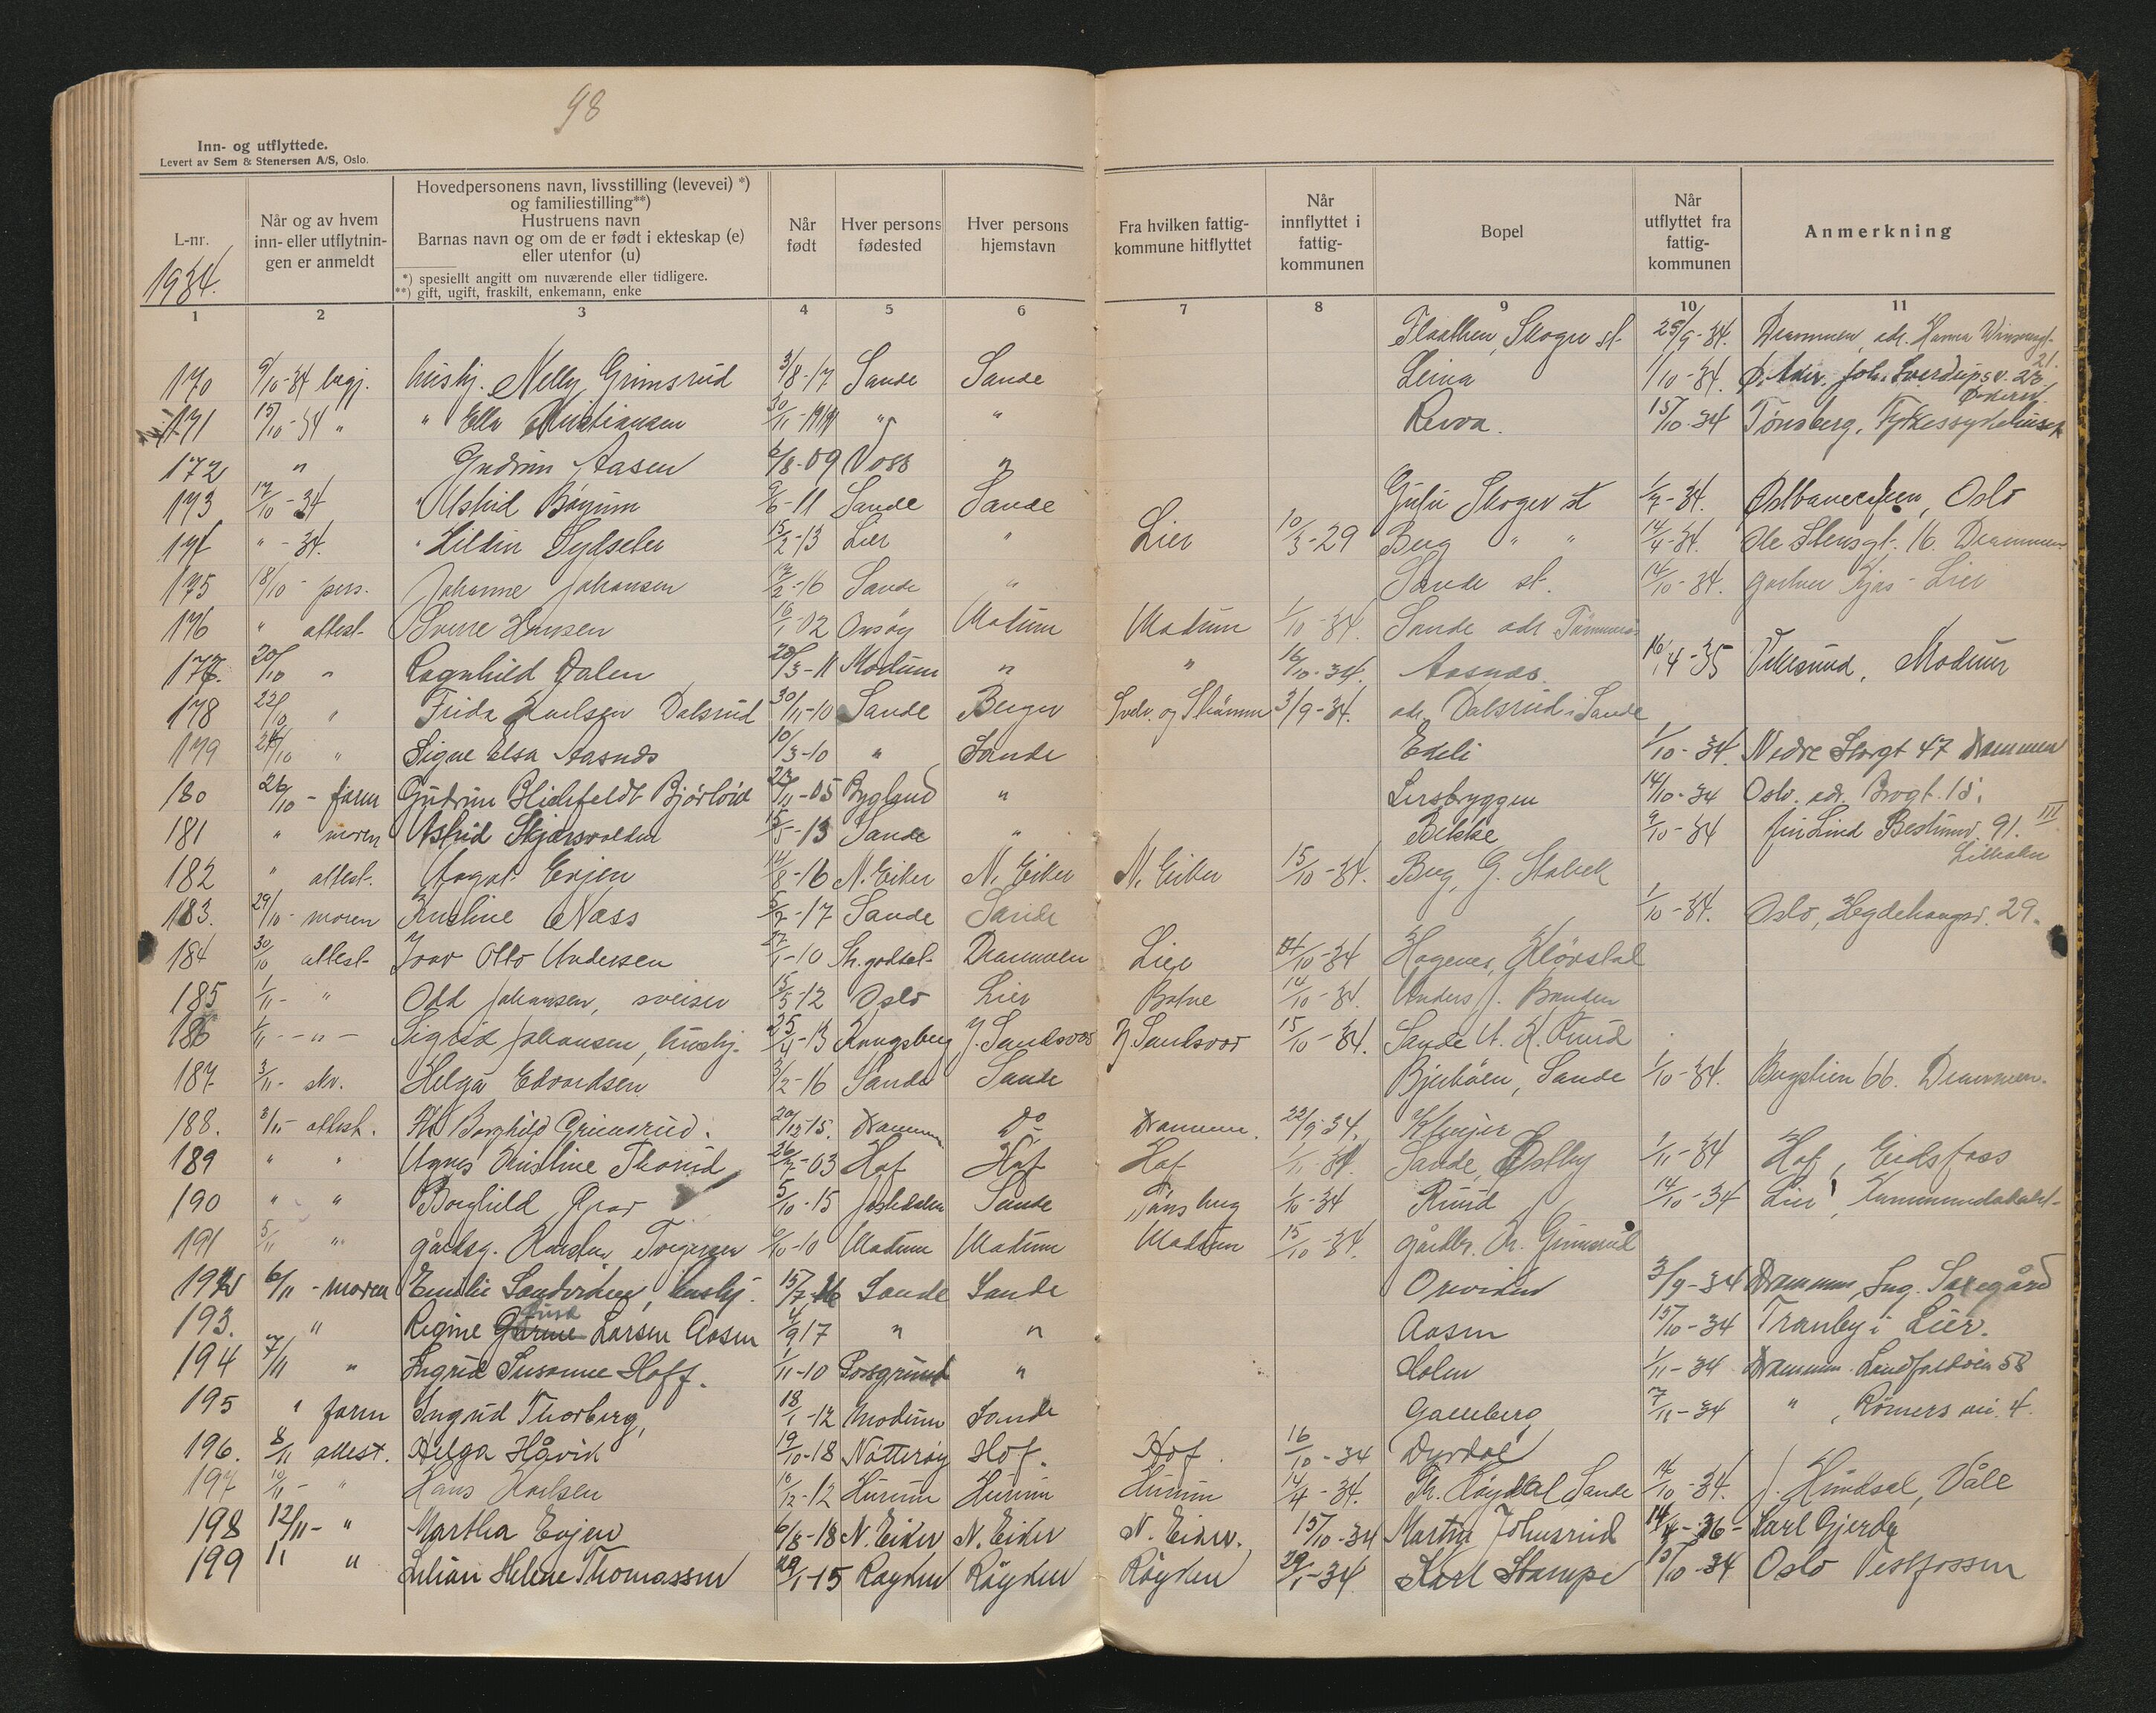 98
Inn- og utflyttede.
Levert av Sem & Stenersen A/S, Oslo.
L-nr.
1934.
Når og av hvem
inn- eller utflytnin-
gen er anmeldt
Hovedpersonens navn, livsstilling (levevei) *)
og familiestilling**)
Hustruens navn
Barnas navn og om de er født i ekteskap (e)
eller utenfor (u)
*) spesielt angitt om nuværende eller tidligere.
**) gift, ugift, fraskilt, enkemann, enke
Når
født
Hver persons
fødested
Hver persons
hjemstavn
Fra hvilken fattig-
kommune hitflyttet
Når
innflyttet i
fattig-
kommunen
Bopel
Når
utflyttet fra
fattig-
kommunen
Anmerkning
1 2 3 4 5 6 7 8 9 10 11
Skoger st. 25/9-34. Drammen, adr. Hanna
21.
170 9/10-34 begj. hushj. Nelly Grimsrud 3/8-17 Sande Sande Leina 1/10-34. Joh. Sverdupsv. 23
171 15/10-34 " " Ella Kristiansen 30/11-1914 " " Revaa. 15/10-34 Tønsberg, Fylkessykehuset
172 " Gudrun Aasen 6/8-09 Voss "
173 17/10-34 " Astrid Bøyum 9/6-11 Sande Sande Skoger st 1/7-34. Oslo
174 " -34. " Sydseter 15/2-13 Lier " Lier 10/3-29 Berg " " 14/4-34. Ole Stensgt. 16. Drammen
175 18/10- pers. Johanne Johansen 17/2-16 Sande " Sande st. 14/10-34. gartner Lier
176 " attest- Sverre Hansen 16/1-02 Onsøy Modum Modum 1/10-34. Sande adr
177. 20/10 " Ragnhild Dalen 20/3-11 Modum " " 16/10-34. Aasnes. 16/4-35 Vikersund, Modum
178 22/10 " Frida Karlsen Dalsrud 30/11-10 Sande Berger Svelv. og Strømm 3/9-34. adr. Dalsrud i Sande
179 24/10 " Signe Elsa Aasnes 10/3-10 " Sande Ekeli 1/10-34. Nedre Storgt 47 Drammen
180 26/10 - faren Gudrun Blichfeldt 23/11-05 Bygland " Lersbryggen 14/10-34 Oslo. adr. Brogt. 15.
181 " moren Astrid Skjærsvolden 15/5-13 Sande " Bekke 9/10-34 Bestumv. 91. III
Lilleaker
182 " attest. Aagot Evjen 14/8-16 N. Eiker N. Eiker N. Eiker 15/10-34. Berg, G. Stabek
183. 29/10- moren Kristine Næss 5/2-17 Sande Sande 1/10-34. Oslo, Hegdehaugsv. 29.
184 30/10 attest- Ivar Otto Andersen 27/1-10 Drammen Lier 24/10-34 Hagenes, Kløvstad
185 1/11- " Odd Johansen, sveiser 15/5-12 Oslo Lier Botne 14/10-34. Anders J. Branden
186 1/11 - " - Sigrid Johansen, hushj. 25/4-13 Kongsberg Y. Sandsvær Y. Sandsvær 15/10-34. Sande A. K. Ruud
187 3/11- skr. Helga Edvardsen 3/2-16 Sande Sande Bjerkøen, Sande 1/10-34. 66. Drammen.
188. 3/11- attest. Borghild Grimsrud. 20/12-15. Drammen Do Drammen. 22/9-34. Klinjer
189 " " Agnes Kristine Thorrud 26/7-03 Hof Hof Hof 1/11-34. Sande, Østby 1/11-34 Hof, Eidsfoss
190 " " Borghild Grav 5/10-15 Sande Tønsberg 1/10-34 Ruud 14/10-34 Lier,
191 5/11 " gårdsg. Karsten 9/10-10 Modum Modum Modum 15/10-34. gårdbr. Kr. Grimsrud
192 6/11 - moren Emilie Sanderden, hushj. 15/7-16 Sande Sande Oreviken 3/9-34 Drammen, Ing. Saxegård
193. " Regine Larsen Aasen 4/9 17 " " Aasen 15/10-34 Tranby i Lier.
194 7/11 " Ingrid Susanne Hoff. 1/11-10 Porsgrund " Holm 1/11-34 Drammen. Landfaldøen 58
195 " faren Ingrid Thorberg, 18/1-12 Modum Sande Galleberg 7/11-34 " , Rømers vei. 4.
196. 8/11 attest. Helga Håvik 19/10-18 Nøtterøy Hof. Hof. 16/10-34 Dyrdal
197 10/11- " Hans Karlsen 10/12-12 Hurum Hurum Hurum 14/4-34. Th. Røydal Sande 14/10-34. J. Hundsal, Våle
198 12/11- " Martha Evjen 6/8-18 N. Eiker N. Eiker N. Eiker. 15/10-34 Martin Johnsrud 14/4-36- Karl Gjerde
199 " " Lilian Helene Thomassen 29/1-15 Røyken Røyken Røyken 29/1-34. Karl Stampe 15/10-34 Oslo Vestfossen